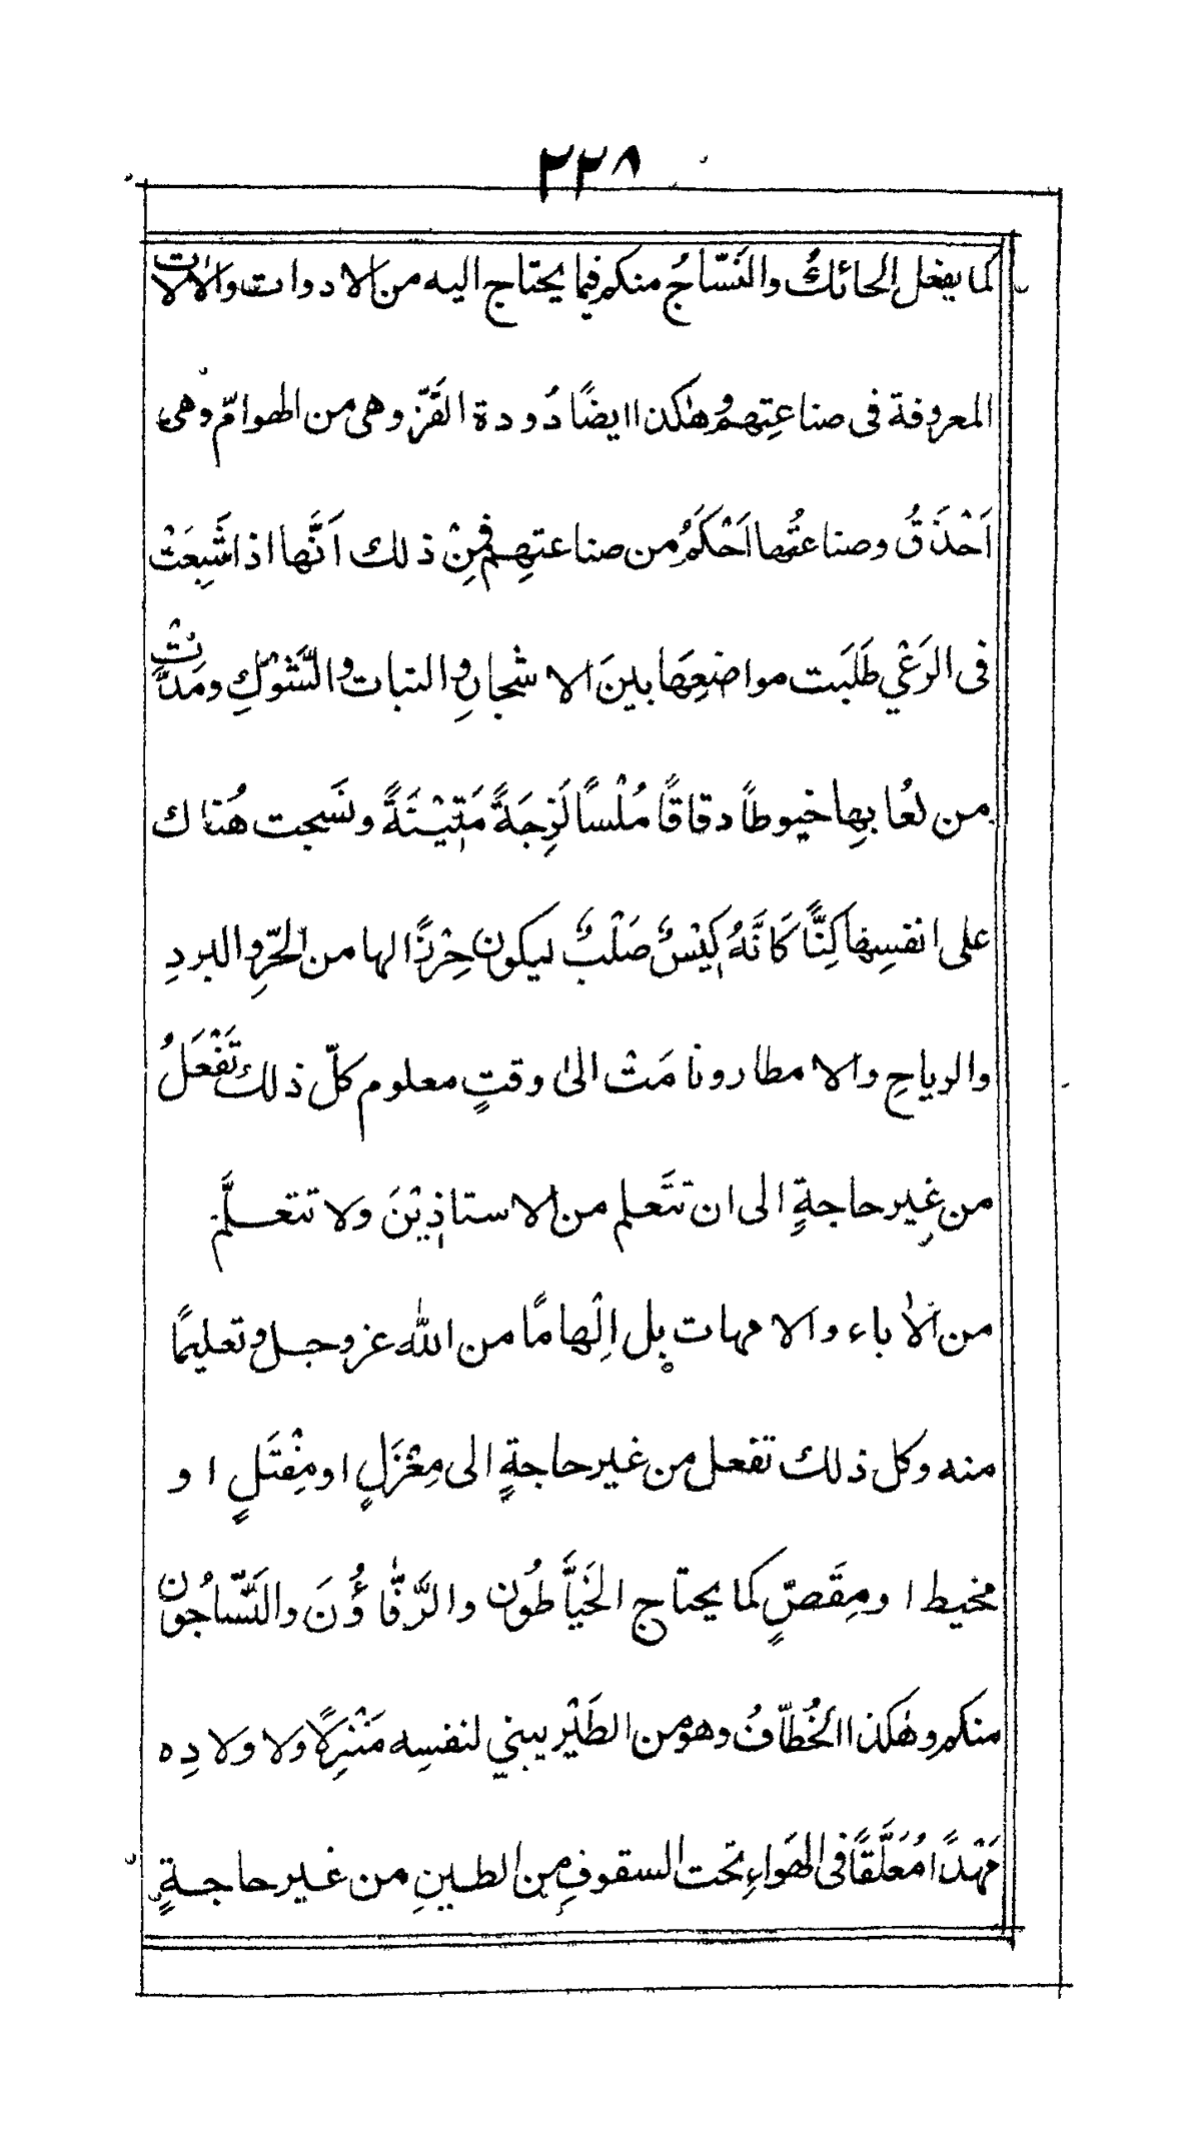 ٢٢٨
كما يفعل الحائكُ والنَسّاجُ منكم فيما يحتاج اليه من الادوات والآلات
المعروفة فى صناعتِهم وهٰكذا ايضًا دُودة القَزّ وهى من الهوامّ وهى
اَحْذَقُ وصناعتُها اَحْكَمُ من صناعتهِم فمِنْ ذلك اَنَّها اذا شَبِعَتْ
فى الرَعْي طَلَبَت مواضعِهَا بينَ الاشجارِ والنبات والشَوْكِ ومَدَّتْ
من لُعابِها خيوطاً دقاقًا مُلْسًا لَزِجَةً مَتِيْنَةً ونَسَجت هُناك
على انفسِها كِنًّا كَانَّهُ كِيْسٌ صَلْبٌ ليكون حِرْزًا لها من الحَرِّ والبردِ
والرياحِ والامطار ونامَتْ الىٰ وقتٍ معلوم كلّ ذلك تَفْعَلُ
من غيرِ حاجةٍ الى ان تتَعلم من الاستاذِيْنَ ولا تتعلَّم
من الآباء والامهات بل اِلْهامًا من الله عزوجل وتعليمًا
منه وكل ذلك تفعل من غير حاجةٍ الى مِغْزَلٍ او مِفْتَلٍ او
مخيط او مِقَصٍّ كما يحتاج الخَيَّاطُون والرَّفَّاؤُنَ والنَّسّاجُون
منكم وهٰكذا الخُطّافُ وهو من الطَيْر يبني لنفسِه مَنْزِلًا ولاولادِه
مَهْدًا مُعَلَّقًا فى الهَواءِ تحت السقوفِ مِن الطينِ من غير حاجةٍ